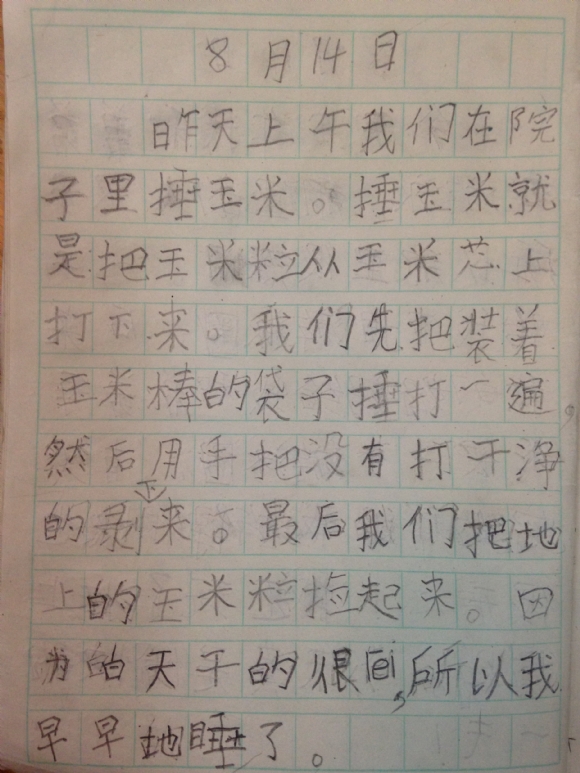 8月14日
昨天上午我们在院
子里捶玉米。捶玉米就
是把玉米粒从玉米芯上
打下来。我们先把装着
玉米棒的袋子捶打一遍
然后用手把没有打干净
的剥下来。最后我们把地
上的玉米粒捡起来。因
为的天干的很,所以我
早早地睡了。